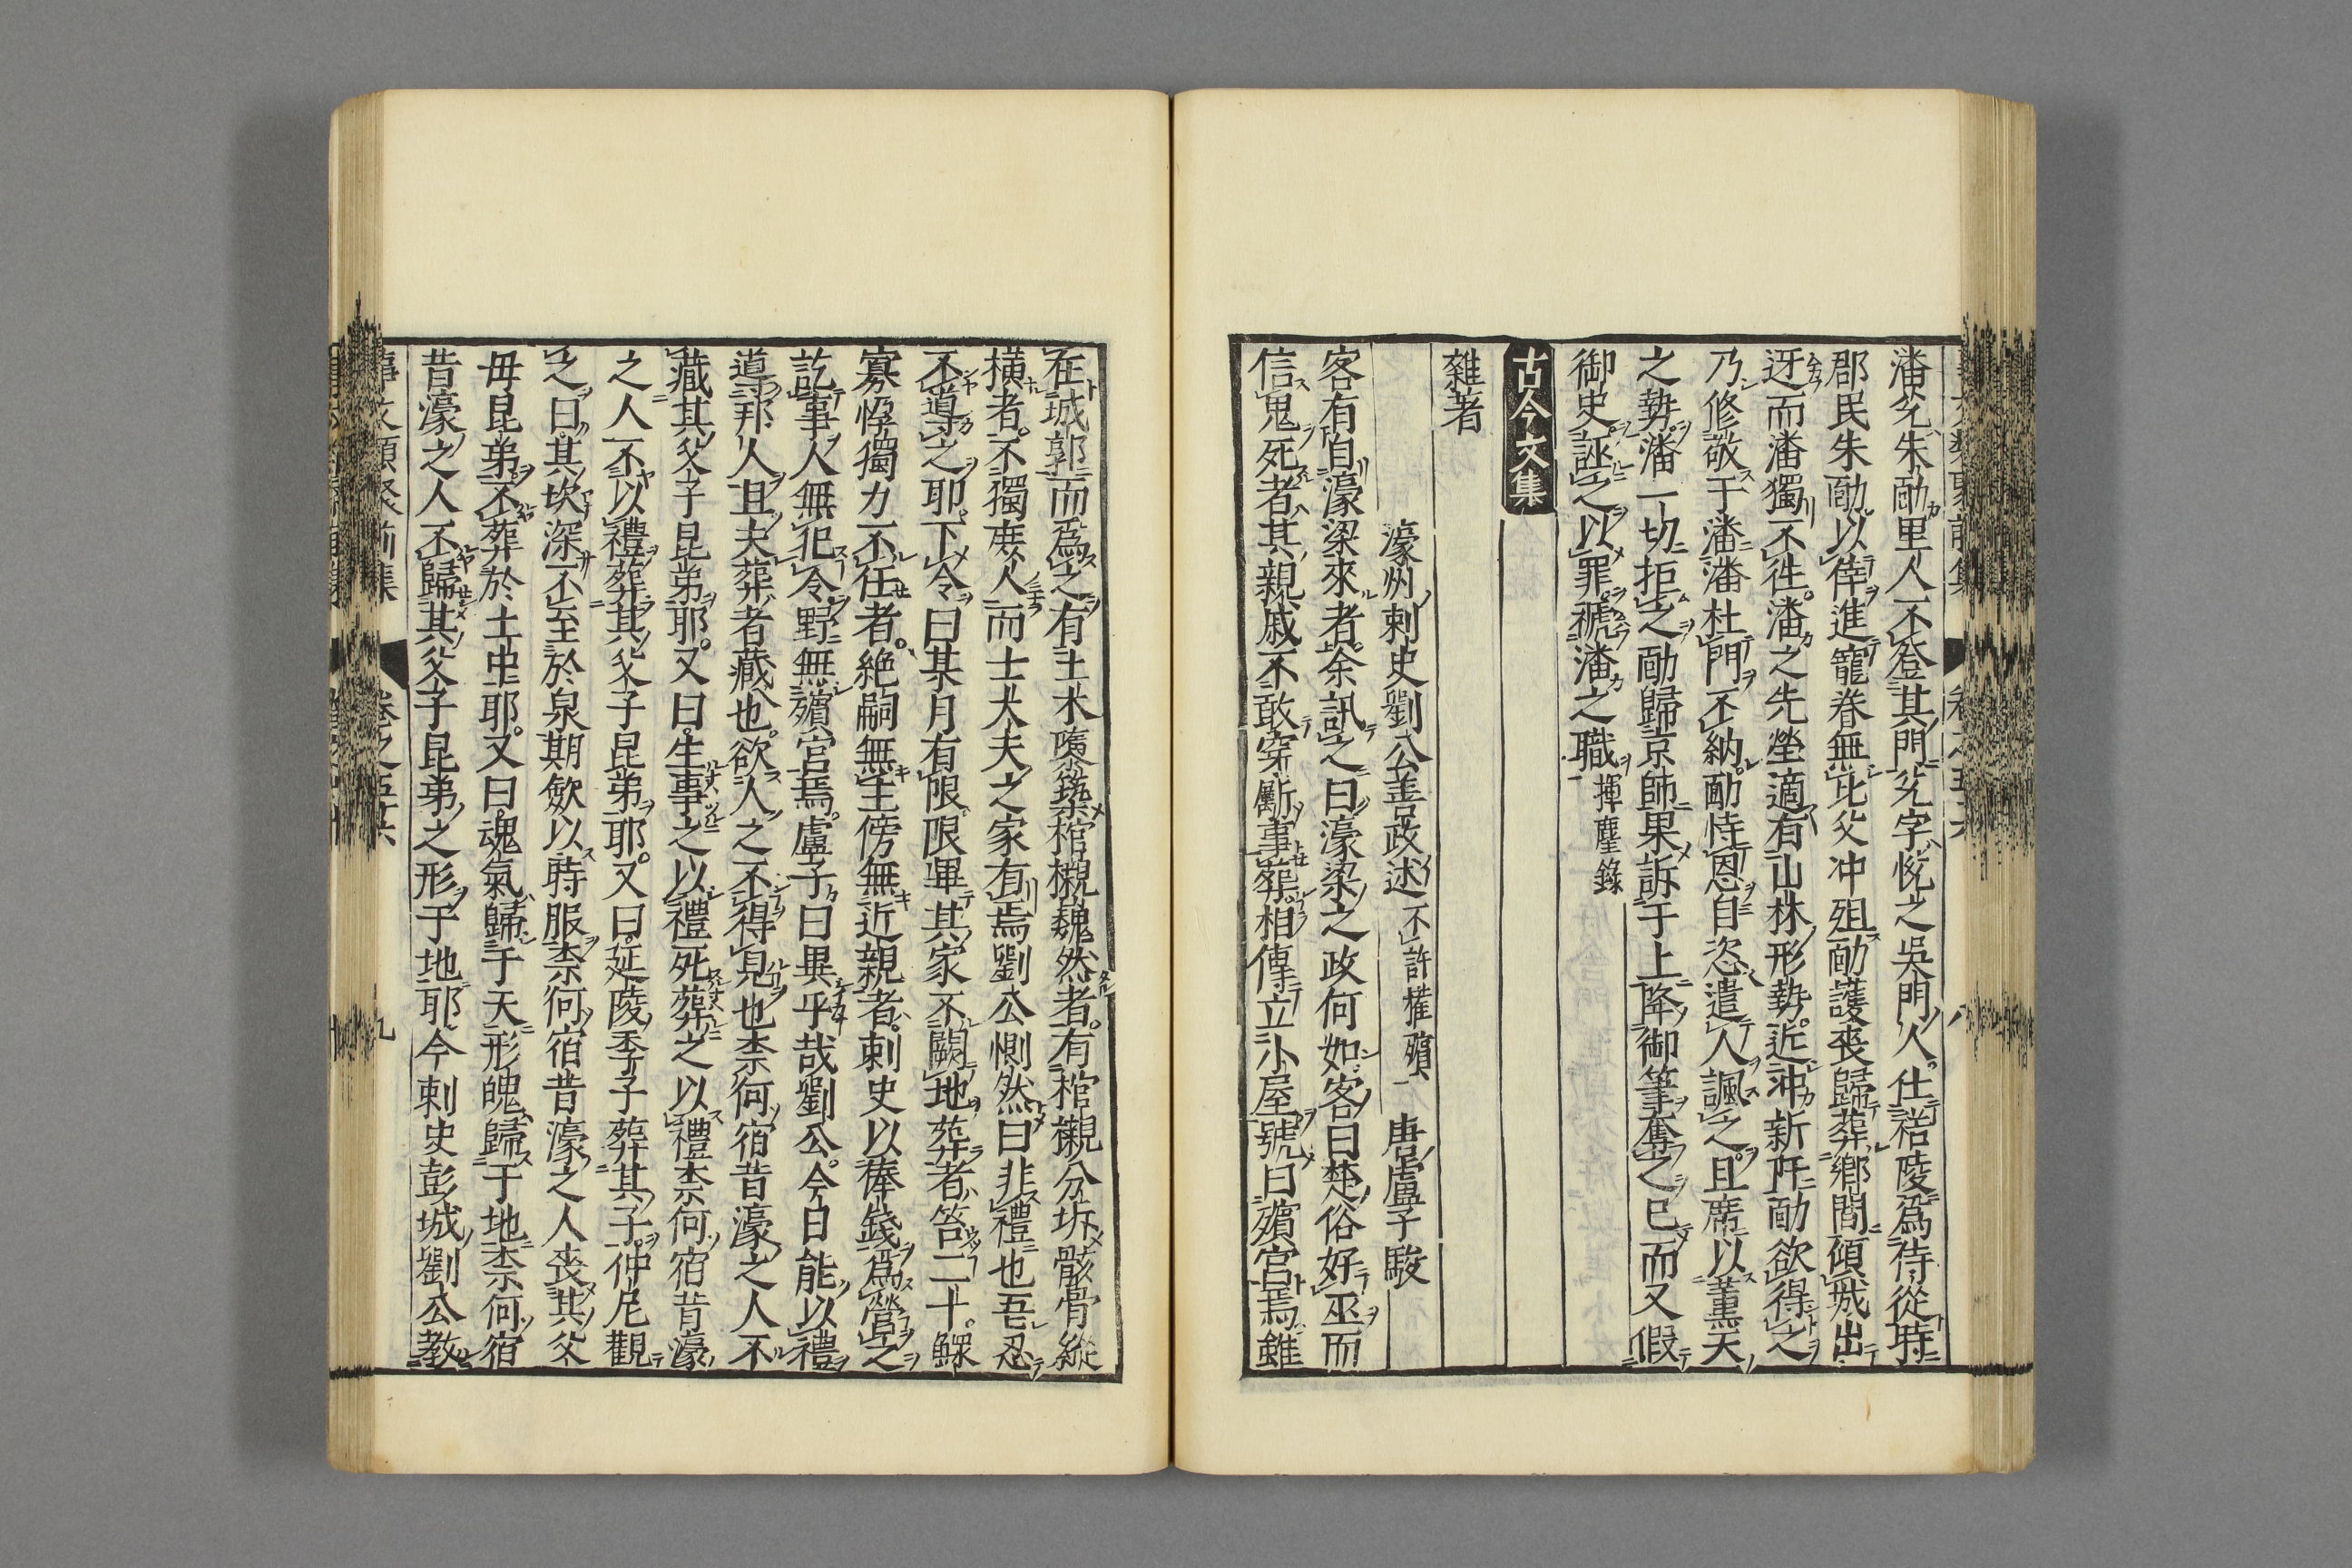 潘兊朱勔里人不登其門兊字恱之吳門人仕祐陵爲待從時
郡民朱勔以倖進寵眷無比父冲殂勔護喪歸葬鄉閭傾城出
迓而潘獨不徃潘之先塋適有山林形勢近冲新阡勔欲得之
乃修敬于潘潘杜門不納勔恃恩自恣遣人諷之且席以薰天
之勢潘一切拒之勔歸京師果訴于上降御筆奪之已而又假
御史誣之以罪褫潘之職 揮麈錄
古今文集
雜著
濠州刺史劉公善政述 不許權殯 唐盧子駿
客有自濠梁來者余訊之曰濠梁之政何如客曰楚俗好巫而
信鬼死者其親戚不敢穿斸事葬相傳立小屋號曰殯宮焉雖
在城郭而爲之有土木隳築棺櫬巍然者有棺櫬分坼骸骨縱
橫者不獨庶人而士大夫之家有焉劉公惻然曰非禮也吾忍
不導之耶下令曰某月有限限畢其家不闕地葬者笞二十鰥
寡惸獨力不任者絶嗣無主傍無近親者刺史以俸錢爲營之
訖事人無犯令野無殯宮焉盧子曰異乎哉劉公今日能以禮
導邦人且夫葬者藏也欲人之不得見也柰何宿昔濠之人不
藏其父子昆弟耶又曰生事之以禮死葬之以禮柰何宿昔濠
之人不以禮葬其父子昆弟耶又曰延陵季子葬其子仲尼觀
之曰其坎深不至於泉期斂以時服柰何宿昔濠之人喪其父
母昆弟不葬於土中耶又曰魂氣歸于天形魄歸于地柰何宿
昔濠之人不歸其父子昆弟之形于地耶今刺史彭城劉公教
九